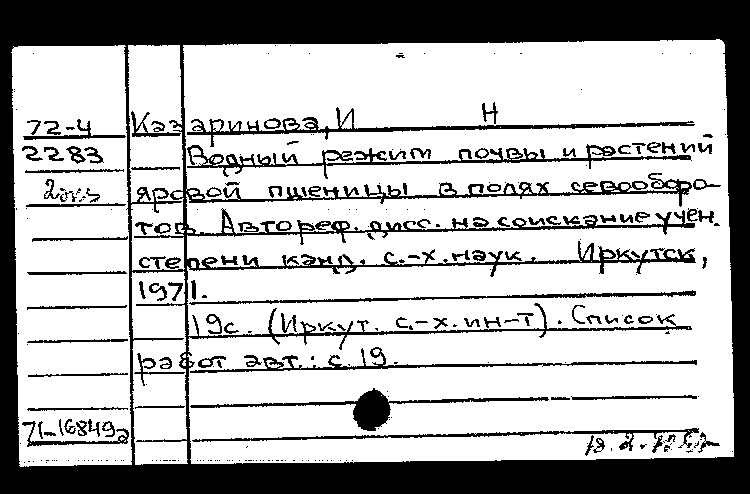 72-4 Казаринова, И Н
2283 Водный режим почвы и растений
2 экз яровой пшеницы в полях севооборо-
тов. Автореф. дисс. на соискание учен.
степени канд. с.-х. наук. Иркутск,
1971.
19с. (Иркут. с.-х. ин-т). Список
работ авт.: с. 19.
71-16849а